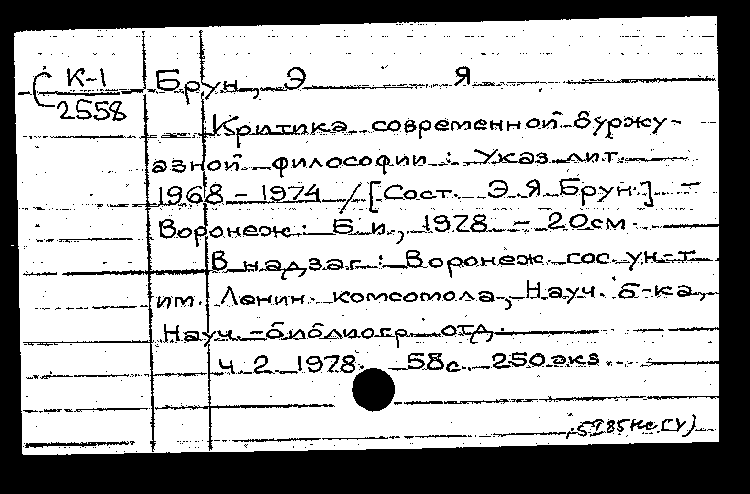 С К-1
2558
Брун, Э Я
Критика современной буржу-
азной философии : Указ. лит.
1968 - 1974 / [Сост. Э. Я. Брун.] -
Воронеж : Б. и., 1978. - 20см.
В надзаг : Воронеж. гос. ун-т
им. Ленин. комсомола, Науч. б-ка,
Науч. -библиогр. отд.
Ч. 2. 1978. 58с. 250 экз.